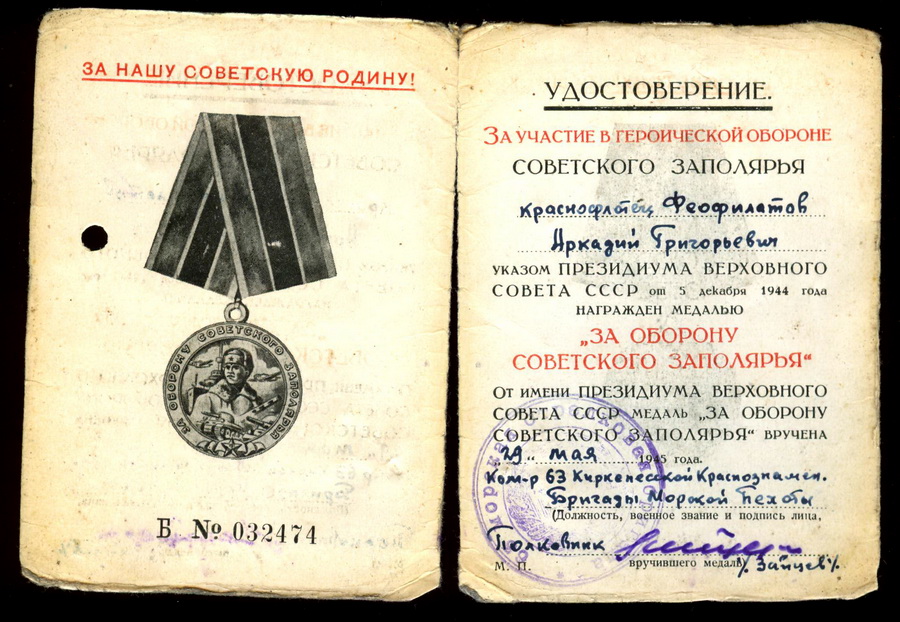 ЗА НАШУ СОВЕТСКУЮ РОДИНУ!
ЗА ОБОРОНУ СОВЕТСКОГО ЗАПОЛЯРЬЯ
Б № 032474
УДОСТОВЕРЕНИЕ.
ЗА УЧАСТИЕ В ГЕРОИЧЕСКОЙ ОБОРОНЕ
СОВЕТСКОГО ЗАПОЛЯРЬЯ
краснофлотец Феофилатов
Аркадий Григорьевич
УКАЗОМ ПРЕЗИДИУМА ВЕРХОВНОГО
СОВЕТА СССР от 5 декабря 1944 года
НАГРАЖДЕН МЕДАЛЬЮ
„ЗА ОБОРОНУ
СОВЕТСКОГО ЗАПОЛЯРЬЯ“
От имени ПРЕЗИДИУМА ВЕРХОВНОГО
СОВЕТА СССР МЕДАЛЬ „ЗА ОБОРОНУ
СОВЕТСКОГО ЗАПОЛЯРЬЯ“ ВРУЧЕНА
„29„ мая 1945 года.
Ком-р 63 Киркенесской Краснознамен.
Бригады Морской Пехоты
(Должность, военное звание и подпись лица,
Полковник
М. П. вручившего медаль) /Зайцев/